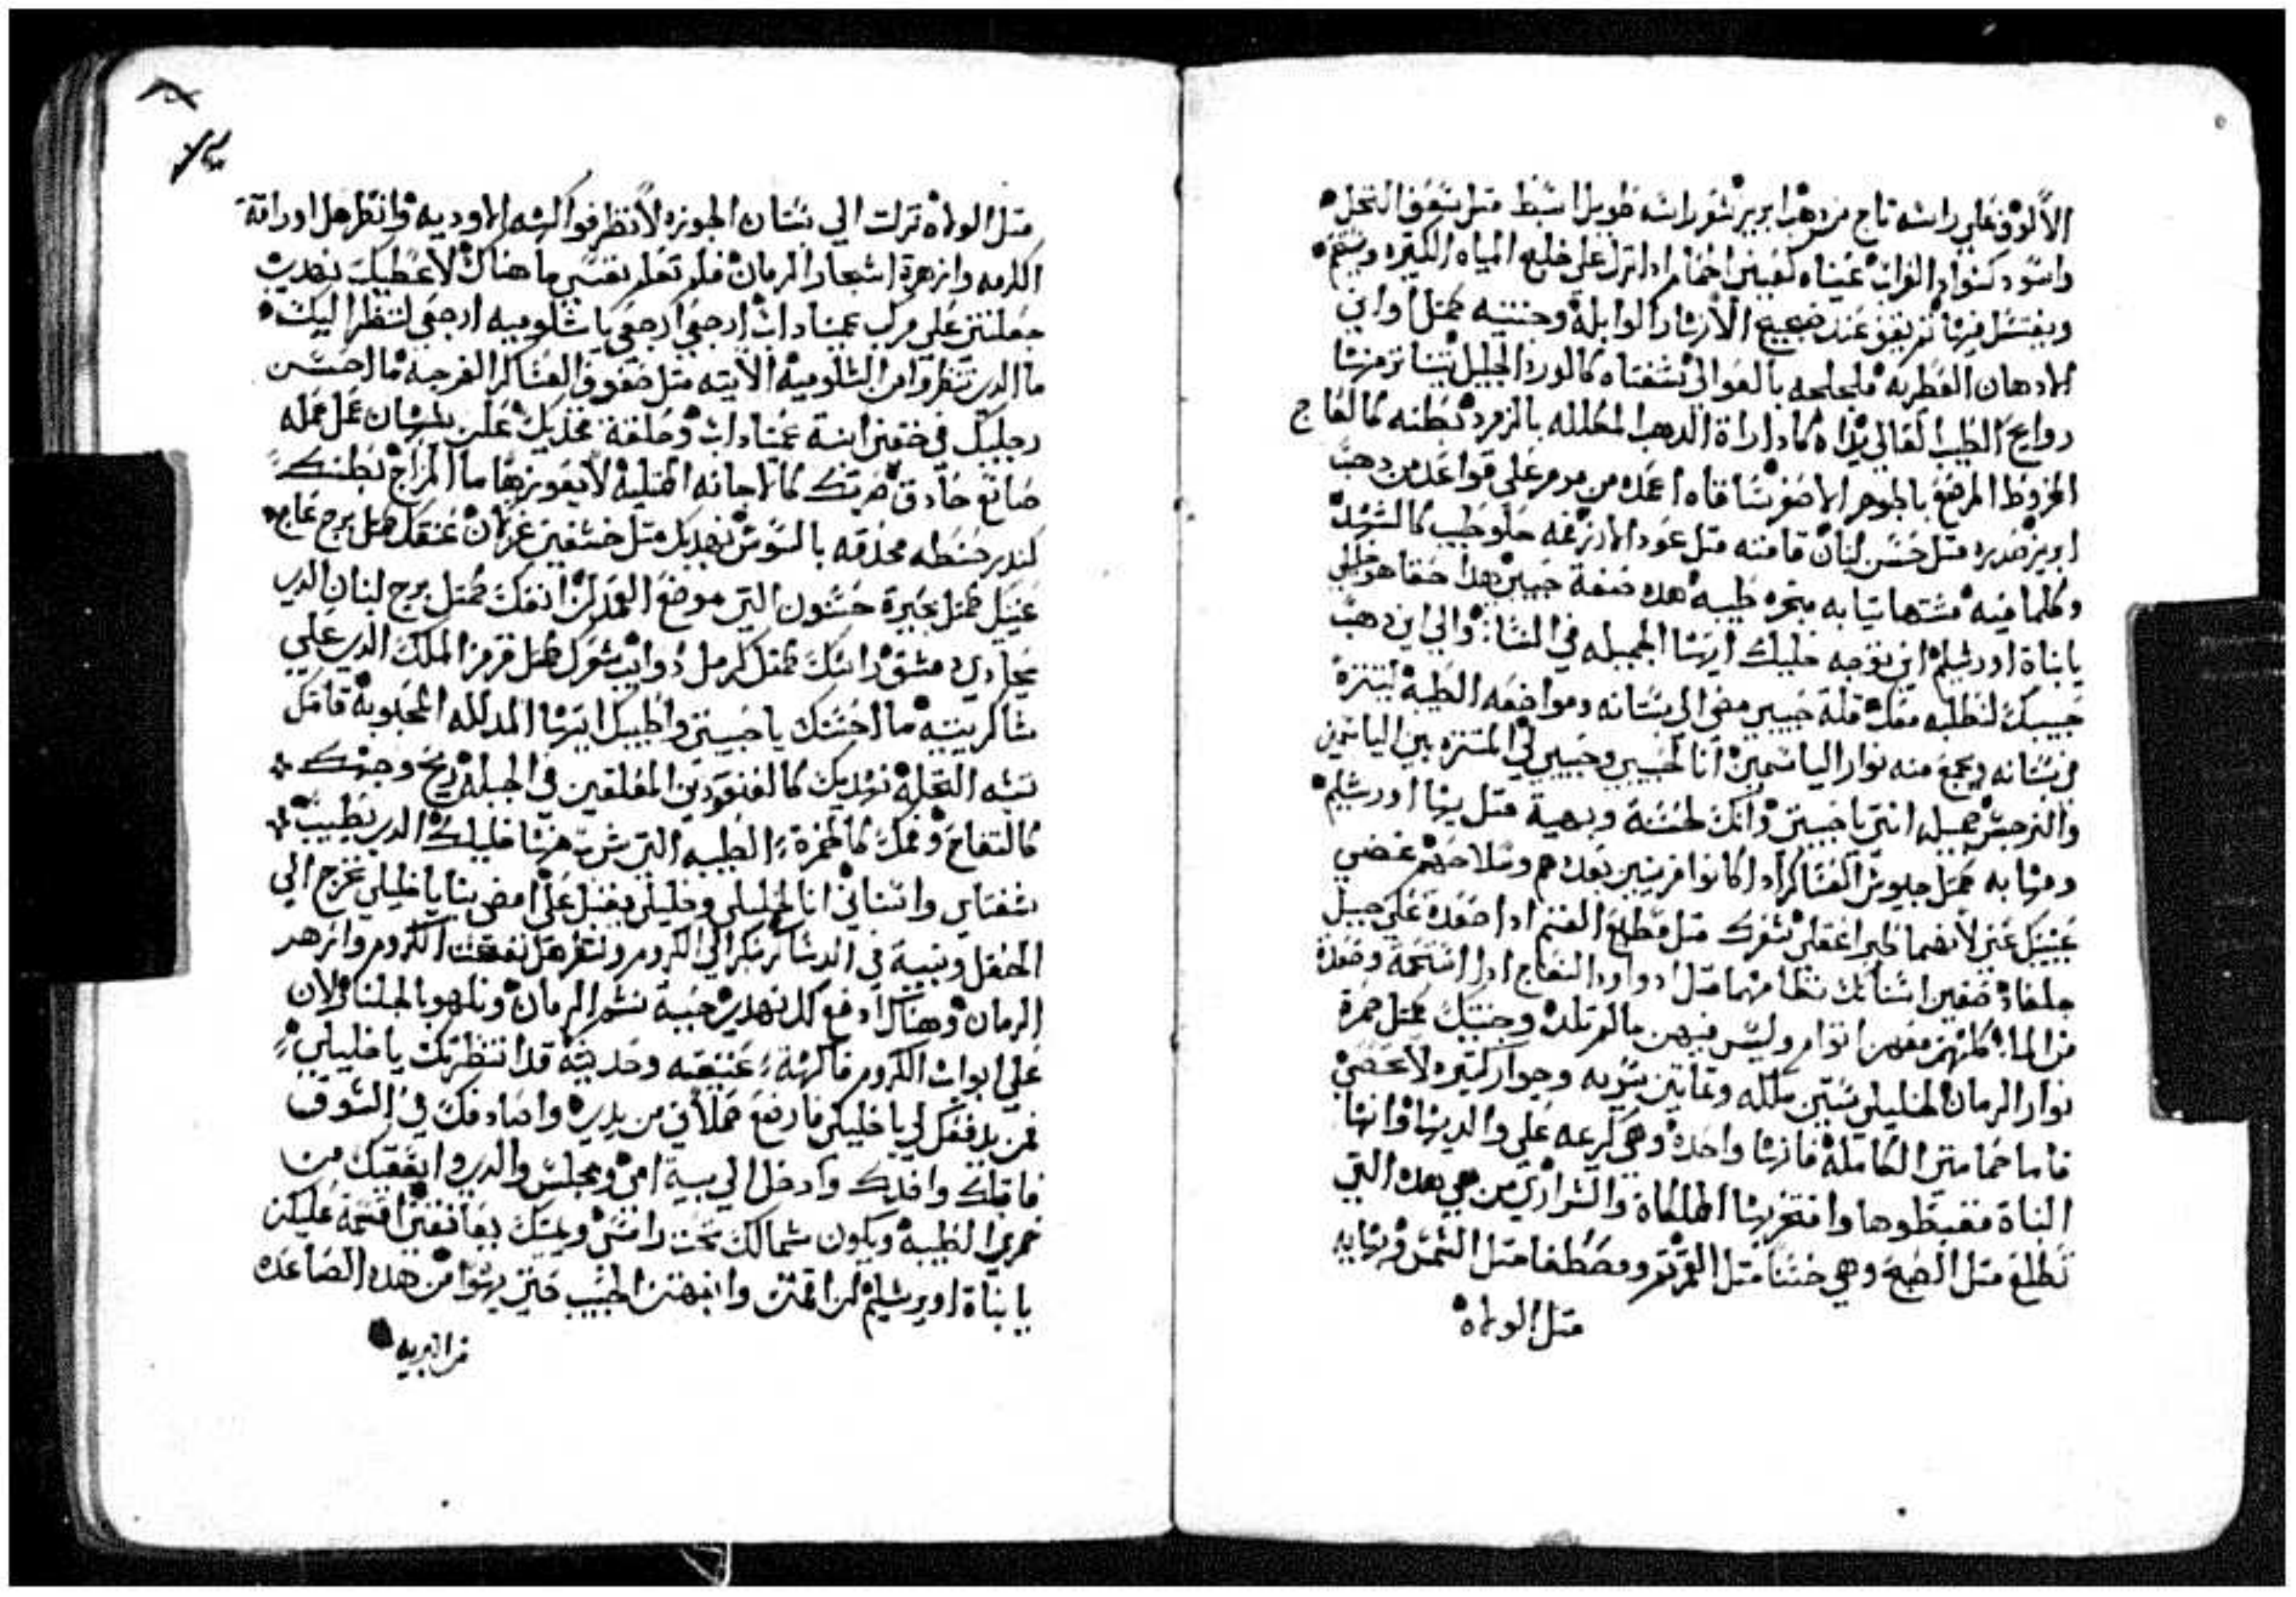 الألوف علي راسه تاج من دهب ابريز شعر راسه طويل اسبط متل سعف النخل
واسود كسواد الغراب عيناه كعينين احمام ادا نزل علي خليج المياه الكتيره وسبح
ويغتسل فيها تم يقف عند ضجيج الأنهار الوابلة وجنتيه كمتل اواني
الادهان العطريه بالغوالي شفتاه كالورد الجليل يتناتر منها
روايح الطيب الغالي يداه كادارة الدهب المكلله بالزمرد بطنه كالعاج
المخروط المرصع بالجوهر الاصفر ساقاه اعمده من مرمر علي قواعد من دهب
ابريز صدره متل حسن لبنان قامته متل عود الارز نغمه حلو طيب كالشهد
وكلما فيه مشتها تيابه مبخره طيبه هده صفة حبيبي هدا حقا هو خليلي
يا بناة اورشليم اين توجه خليلك ايتها الجميله في النسا والي اين دهب
حبيبك لنطلبه معك قلة حبيبي مضي الي بستانه ومواضعه الطيبة ليتنزه
في بستانه ويجمع منه نوار الياسمين أنا لحبيبي وحبيبي لي المتنزه بين الياسمين
والنرجس جميله انتي يا حبيبتي وانك لحسنة وبهية متل بها اورشليم
ومهابه كمتل جيوش العساكر ادا كانوا مرتبين بعددهم وسلاحهم غضي
عينيك عني لأنهما طيرا عقلي شعرك متل قطيع الغنم ادا صعدة علي جبل
جلعاد صفين اسنانك نظامهما متل ادواد النعاج ادا استحمة وصعدة
من الما كلهن معهن اتوام وليس فيهن مالم تلد وجنتيك كمتل حمرة
نوار الرمان لخليلي ستين ملكه وتمانين سريه وجوار كتيره لا تحصي
فاما حمامتي الكاملة فانها واحدة وهي كريمه علي والديها وانها
البناة فغبطوها وافتخر بها الملكاة والسراري من هي هده التي
تطلع متل الصبح وهي حسنا متل القمر ومصطفا متل الشمس وبهابه
متل الولاه
متل الولاه نزلت الي بستان الجوزه لأنظر فواكه الاوديه وانظر هل اورقة
الكرمه وازهرة اشجار الرمان فلم تعلم نفسي ما هناك لأعطيك نهديي
جعلتني علي مركب عميناداب ارجعي ارجعي يا شلوميه ارجعي لننظر اليك
ما الدي تنظروا من الشلومية الآتيه متل صفوف العساكر الفرجيه ما احسن
رجليك في خفين ابنة عميناداب وحلقة فخديك علي عمل عمله
صانع حادق صرتك كالاجانه الممتليه لا يعوزها ما المزاج بطنك
كندر حنطه محدقه بالسوسن نهديك متل خشفين غزلان عنقك متل برج عاج
عينيك كمتل بحيرة حسبون التي موضع العدل انفك كمتل برج لبنان الدي
يحادي دمشق راسك كمتل كرمل دوايب شعرك متل قرمز الملك الدي علي
ما احسنك يا حبيبتي واطيبك ايتها المدلله المحبوبة قامتك
تشبه النخلة نهديك كالعنقودين المعلقين في الحبله ريح وجهك
كالتفاح وفمك كالخمرة الطيبه التي شرب منها خليلك الدي يطيب
شفتاي واسناني انا لخليلي وخليلي يقبل علي امضي بنا يا خليلي نخرج الي
الحقل ونبية في الدساكر نبكر الي الكروم وننظر هل تفتحت الكروم وازهر
الرمان وهناك ادفع لك نهديي حبية نشم الرمان ونلهو بالجلنار لان
علي ابواب الكروم فاكهة عتيقه وحديته قد انتظرتك يا خليلي
فمن يدفعك لي يا خليلي فارضع حملاني من يديه واصادفك في السوق
فاقبلك وافديك وادخل الي بية امي ومجلس والدي واسقيك من
خمري الطيبة ويكون شمالك تحت راسي ويمينك يعانقني اقسمة عليكن
يا بناة اويرشليم ان اقمتن وانبهتن الحبيب حتي يهوا من هده الصاعده
من البريه